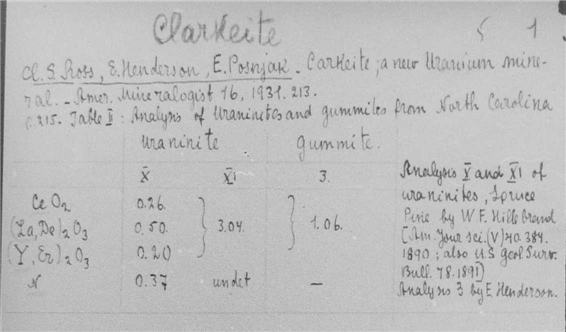 Clarkeite 5 1
Cl. S. Ross, E. Henderson, E. Posnjak. Carkeite, a new Uranium mine-
ral. - Amer. Mineralogist 16, 1931. 213.
p. 215. Table II: Analysis of Uraninites and gummites from North Carolina
Uraninite Gummite.
X XI 3.
CeO2 0.26.
(La, De)2O3 0.50. } 3.04. } 1.06.
(Y, Er)2O3 0.20
N 0.37 undet —
Analysis X and XI of
uraninites, Spruce
Pine by W F. Hillebrand
[Am. Jour sci. (V) 40. 384.
1890; also U.S Geol Surv.
Bull. 78. 1891]
Analysis 3 by E. Henderson.